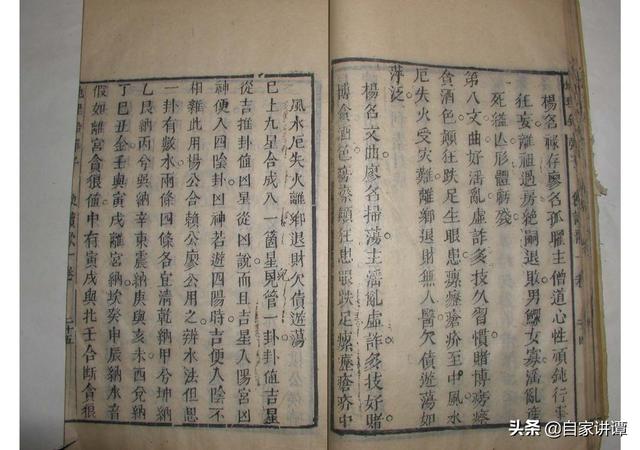 楊名祿存廖名孤曜主僧道心性頑鈍行事
狂妄離祖過房絶嗣退敗男鰥女寡滛亂産
死縊凶形體斵殘
第八文曲好滛亂虛詐多技久習慣賭博癆瘵
貪酒色顛狂跌足生眼患瘰癧瘡疥至中風水
厄失火受災難離鄉退財無人醫欠債遊蕩如
萍泛
楊名文曲廖名掃蕩主滛亂虛詐多技好賭
博貪酒色癆瘵顛狂患眼跌足瘰癧瘡疥中
風水厄失火離鄉退財欠債遊蕩
已上九星合成八一箇星見管一卦卦值吉星
從吉推卦值凶星從凶說而且吉星入陽宮凶
神便入四陰卦凶神若遊四陽時吉便入陰不
相雜此用楊公合賴公廖公用之辨水法但思
一卦有數水兩條四條各宜清乾納甲兮坤納
乙艮納丙兮巽納辛東震納庚與亥未西兌納
丁巳丑金壬與寅戌離宮納癸申辰納水音
假如離宮貪狼值中有寅戌與北壬合断貪狼
二十五
头条 @自家讲谭